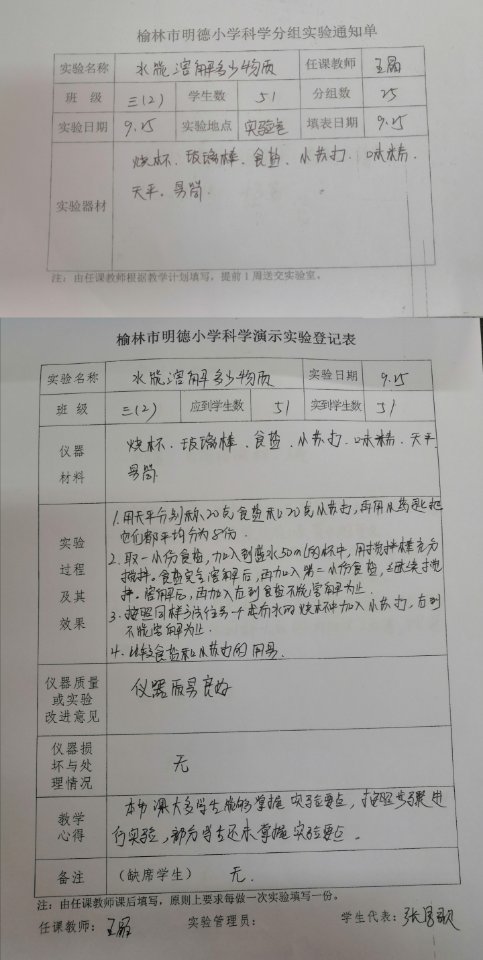 榆林市明德小学科学分组实验通知单
实验名称 水能溶解多少物质 任课教师 王丽
班 级 三(2) 学生数 51 分组数 25
实验日期 9.25 实验地点 实验室 填表日期 9.25
实验器材 烧杯、玻璃棒、食盐、小苏打、味精、
天平、量筒
注：由任课教师根据教学计划填写，提前1周送交实验室。
榆林市明德小学科学演示实验登记表
实验名称 水能溶解多少物质 实验日期 9.25
班 级 三(2) 应到学生数 51 实到学生数 51
仪器材料 烧杯、玻璃棒、食盐、小苏打、味精、天平
量筒
实验过程及其效果
1.用天平分别称20克食盐和20克小苏打，再用从药匙把
它们都平均分为8份.
2.取一小份食盐，加入到盛水50ml的杯中，用搅拌棒充分
搅拌。食盐完全溶解后，再加入第二小份食盐，继续搅
拌。溶解后，再加入直到食盐不能溶解为止.
3.按照同样方法往另一个盛有水的烧杯中加入小苏打，直到
不能溶解为止.
4.比较食盐和小苏打的用量.
仪器质量或实验改进意见 仪器质量良好
仪器损坏与处理情况 无
教学心得 本节课大多学生能够掌握实验要点，按照步骤进
行实验，部分学生还未掌握实验要点.
备注 (缺席学生) 无.
注：由任课教师课后填写，原则上要求每做一次实验填写一份。
任课教师：王丽 实验管理员： 学生代表：张